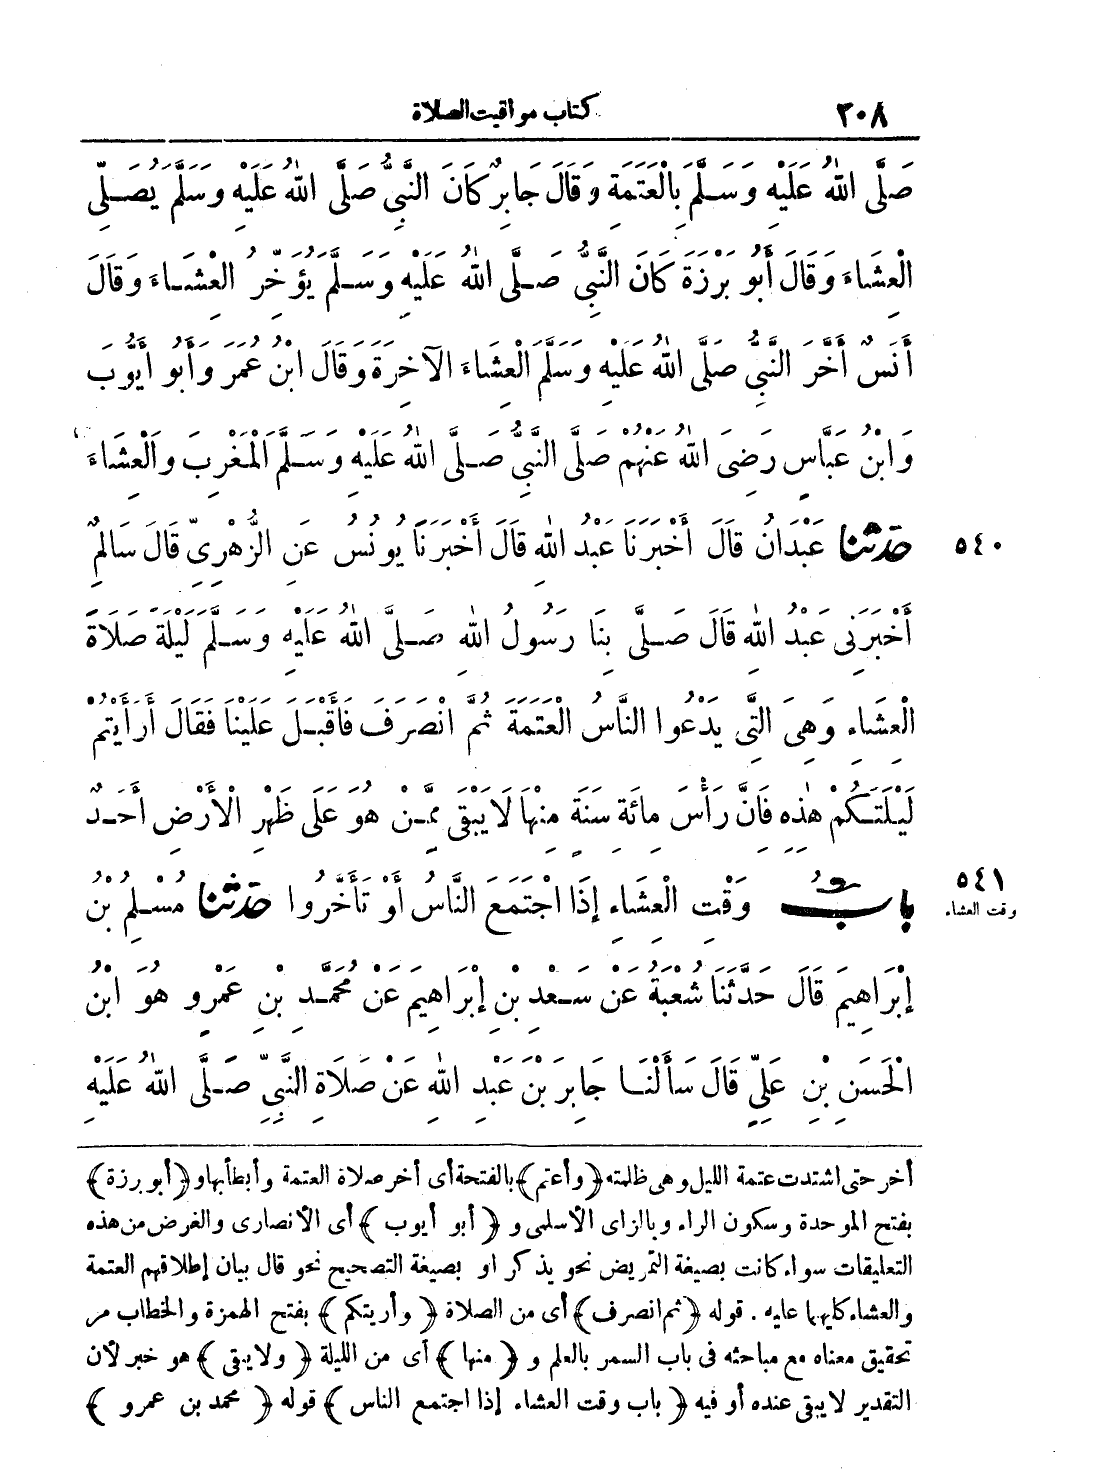 ٢٠٨ كتاب مواقيت الصلاة
صَلَّى اللهُ عَلَيْهِ وَسَلَّمَ بِالْعَتَمَةِ وَقَالَ جَابِرٌ كَانَ النَّبِيُّ صَلَّى اللهُ عَلَيْهِ وَسَلَّمَ يُصَلِّي
الْعِشَاءَ وَقَالَ أَبُو بَرْزَةَ كَانَ النَّبِيُّ صَلَّى اللهُ عَلَيْهِ وَسَلَّمَ يُؤَخِّرُ الْعِشَاءَ وَقَالَ
أَنَسٌ أَخَّرَ النَّبِيُّ صَلَّى اللهُ عَلَيْهِ وَسَلَّمَ الْعِشَاءَ الآخِرَةَ وَقَالَ ابْنُ عُمَرَ وَأَبُو أَيُّوبَ
وَابْنُ عَبَّاسٍ رَضِىَ اللهُ عَنْهُمْ صَلَّى النَّبِيُّ صَلَّى اللهُ عَلَيْهِ وَسَلَّمَ الْمَغْرِبَ وَالْعِشَاءَ
٥٤٠ حَدَّثَنَا عَبْدَانُ قَالَ أَخْبَرَنَا عَبْدُ اللهِ قَالَ أَخْبَرَنَا يُونُسُ عَنِ الزُّهْرِىِّ قَالَ سَالِمٌ
أَخْبَرَنِى عَبْدُ اللهِ قَالَ صَلَّى بِنَا رَسُولُ اللهِ صَلَّى اللهُ عَلَيْهِ وَسَلَّمَ لَيْلَةً صَلَاةَ
الْعِشَاءِ وَهِىَ الَّتِى يَدْعُوا النَّاسُ الْعَتَمَةَ ثُمَّ انْصَرَفَ فَأَقْبَلَ عَلَيْنَا فَقَالَ أَرَأَيْتُمْ
لَيْلَتَكُمْ هٰذِهِ فَإِنَّ رَأْسَ مِائَةِ سَنَةٍ مِنْهَا لَا يَبْقَى مِمَّنْ هُوَ عَلَى ظَهْرِ الْأَرْضِ أَحَدٌ
٥٤١ بَابُ وَقْتِ الْعِشَاءِ إِذَا اجْتَمَعَ النَّاسُ أَوْ تَأَخَّرُوا حَدَّثَنَا مُسْلِمُ بْنُ
وقت العشاء
إِبْرَاهِيمَ قَالَ حَدَّثَنَا شُعْبَةُ عَنْ سَعْدِ بْنِ إِبْرَاهِيمَ عَنْ مُحَمَّدِ بْنِ عَمْرٍو هُوَ ابْنُ
الْحَسَنِ بْنِ عَلِيٍّ قَالَ سَأَلْنَا جَابِرَ بْنَ عَبْدِ اللهِ عَنْ صَلَاةِ النَّبِيِّ صَلَّى اللهُ عَلَيْهِ
أخر حتى اشتدت عتمة الليل وهى ظلمته ﴿وأعتم﴾ بالفتحة أى أخر صلاة العتمة وأبطأ بها و﴿أبو برزة﴾
بفتح الموحدة وسكون الراء وبالزاى الأسلمى و ﴿ أبو أيوب ﴾ أى الأنصارى والغرض من هذه
التعليقات سواء كانت بصيغة التمريض نحو يذكر او بصيغة التصحيح نحو قال بيان إطلاقهم العتمة
والعشاء كليهما عليه . قوله ﴿ثم انصرف﴾ أى من الصلاة ﴿ وأريتكم ﴾ بفتح الهمزة والخطاب مر
تحقيق معناه مع مباحثه فى باب السمر بالعلم و ﴿ منها ﴾ أى من الليلة ﴿ ولا يبقى ﴾ هو خبر لأن
التقدير لا يبقى عنده أو فيه ﴿ باب وقت العشاء إذا اجتمع الناس ﴾ قوله ﴿ محمد بن عمرو ﴾